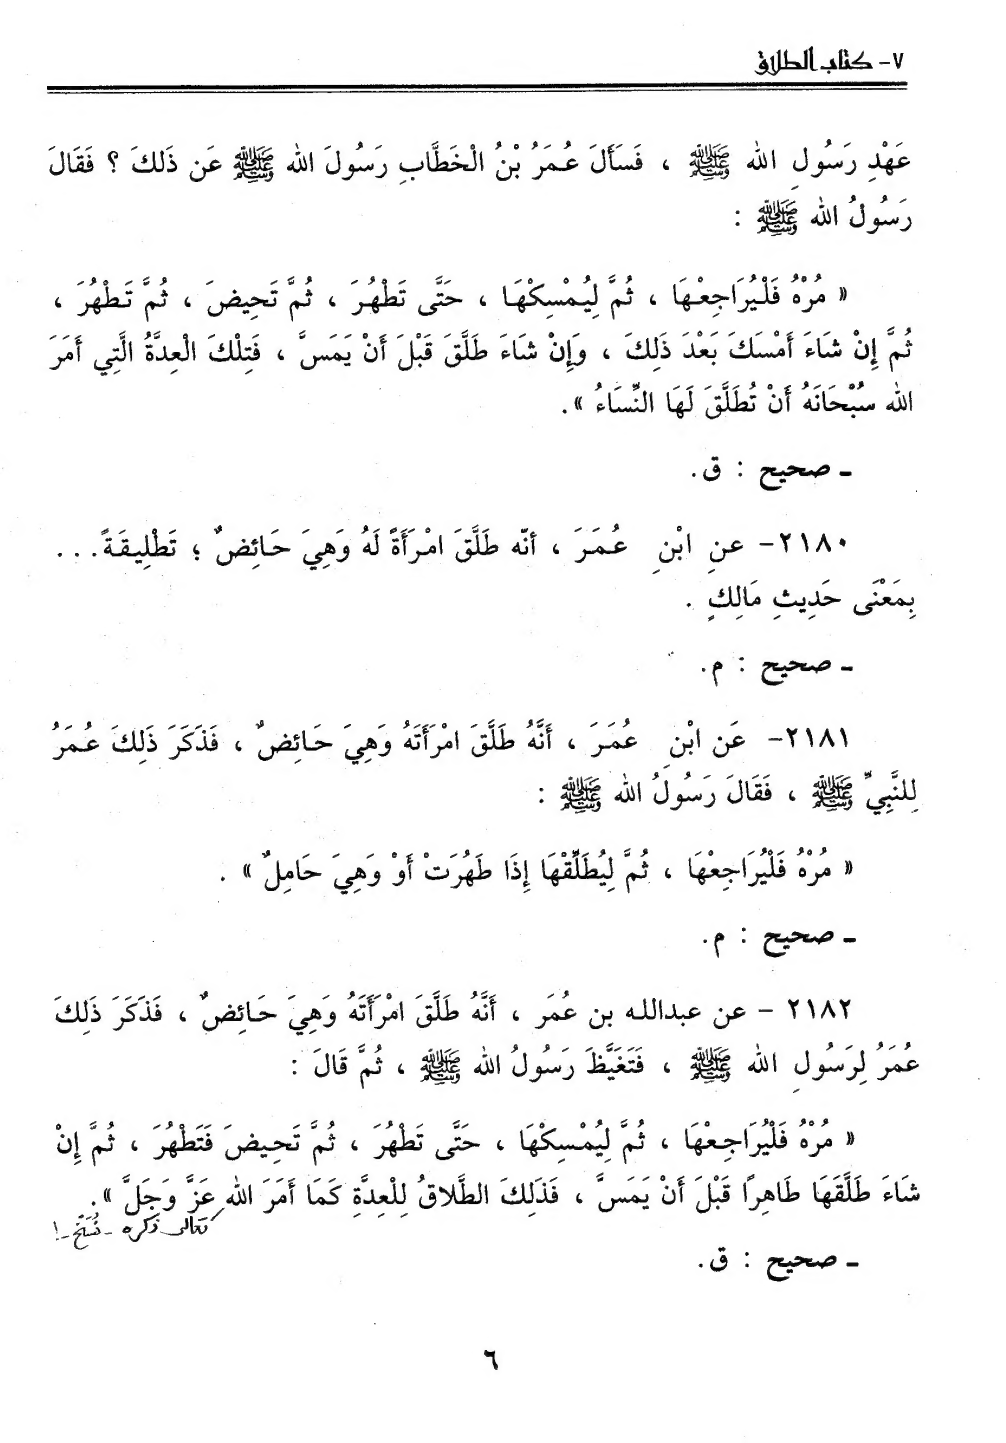 ٧- كتاب الطلاق
عَهْدِ رَسُولِ الله ﷺ ، فَسَأَلَ عُمَرُ بْنُ الْخَطَّابِ رَسُولَ الله ﷺ عَن ذَلكَ ؟ فَقَالَ
رَسُولُ الله ﷺ :
« مُرْهُ فَلْيُرَاجِعْهَا ، ثُمَّ لِيُمْسِكْهَا ، حَتَّى تَطْهُرَ ، ثُمَّ تَحِيضَ ، ثُمَّ تَطْهُرَ ،
ثُمَّ إِنْ شَاءَ أَمْسَكَ بَعْدَ ذَلِكَ ، وَإِنْ شَاءَ طَلَّقَ قَبْلَ أَنْ يَمَسَّ ، فَتِلْكَ الْعِدَّةُ الَّتِي أَمَرَ
الله سُبْحَانَهُ أَنْ تُطَلَّقَ لَهَا النِّسَاءُ ».
ـ صحيح : ق.
٢١٨٠- عنِ ابْنِ عُمَرَ ، أنّه طَلَّقَ امْرَأَةً لَهُ وَهِيَ حَائِضٌ ؛ تَطْلِيقَةً...
بِمَعْنَى حَدِيثِ مَالِكٍ .
ـ صحيح : م.
٢١٨١- عَن ابْنِ عُمَرَ ، أَنَّهُ طَلَّقَ امْرَأَتَهُ وَهِيَ حَائِضٌ ، فَذَكَرَ ذَلِكَ عُمَرُ
لِلنَّبِيِّ ﷺ ، فَقَالَ رَسُولُ الله ﷺ :
« مُرْهُ فَلْيُرَاجِعْهَا ، ثُمَّ لِيُطَلِّقْهَا إِذَا طَهُرَتْ أَوْ وَهِيَ حَامِلٌ » .
ـ صحيح : م.
٢١٨٢ - عن عبدالله بن عُمَر ، أَنَّهُ طَلَّقَ امْرَأَتَهُ وَهِيَ حَائِضٌ ، فَذَكَرَ ذَلِكَ
عُمَرُ لِرَسُولِ الله ﷺ ، فَتَغَيَّظَ رَسُولُ الله ﷺ ، ثُمَّ قَالَ :
« مُرْهُ فَلْيُرَاجِعْهَا ، ثُمَّ لِيُمْسِكْهَا ، حَتَّى تَطْهُرَ ، ثُمَّ تَحِيضَ فَتَطْهُرَ ، ثُمَّ إِنْ
شَاءَ طَلَّقَهَا طَاهِرًا قَبْلَ أَنْ يَمَسَّ ، فَذَلِكَ الطَّلاقُ لِلْعِدَّةِ كَمَا أَمَرَ الله عَزَّ وَجَلَّ ».
تعالى ذكره - نُسَخ -!
ـ صحيح : ق.
٦